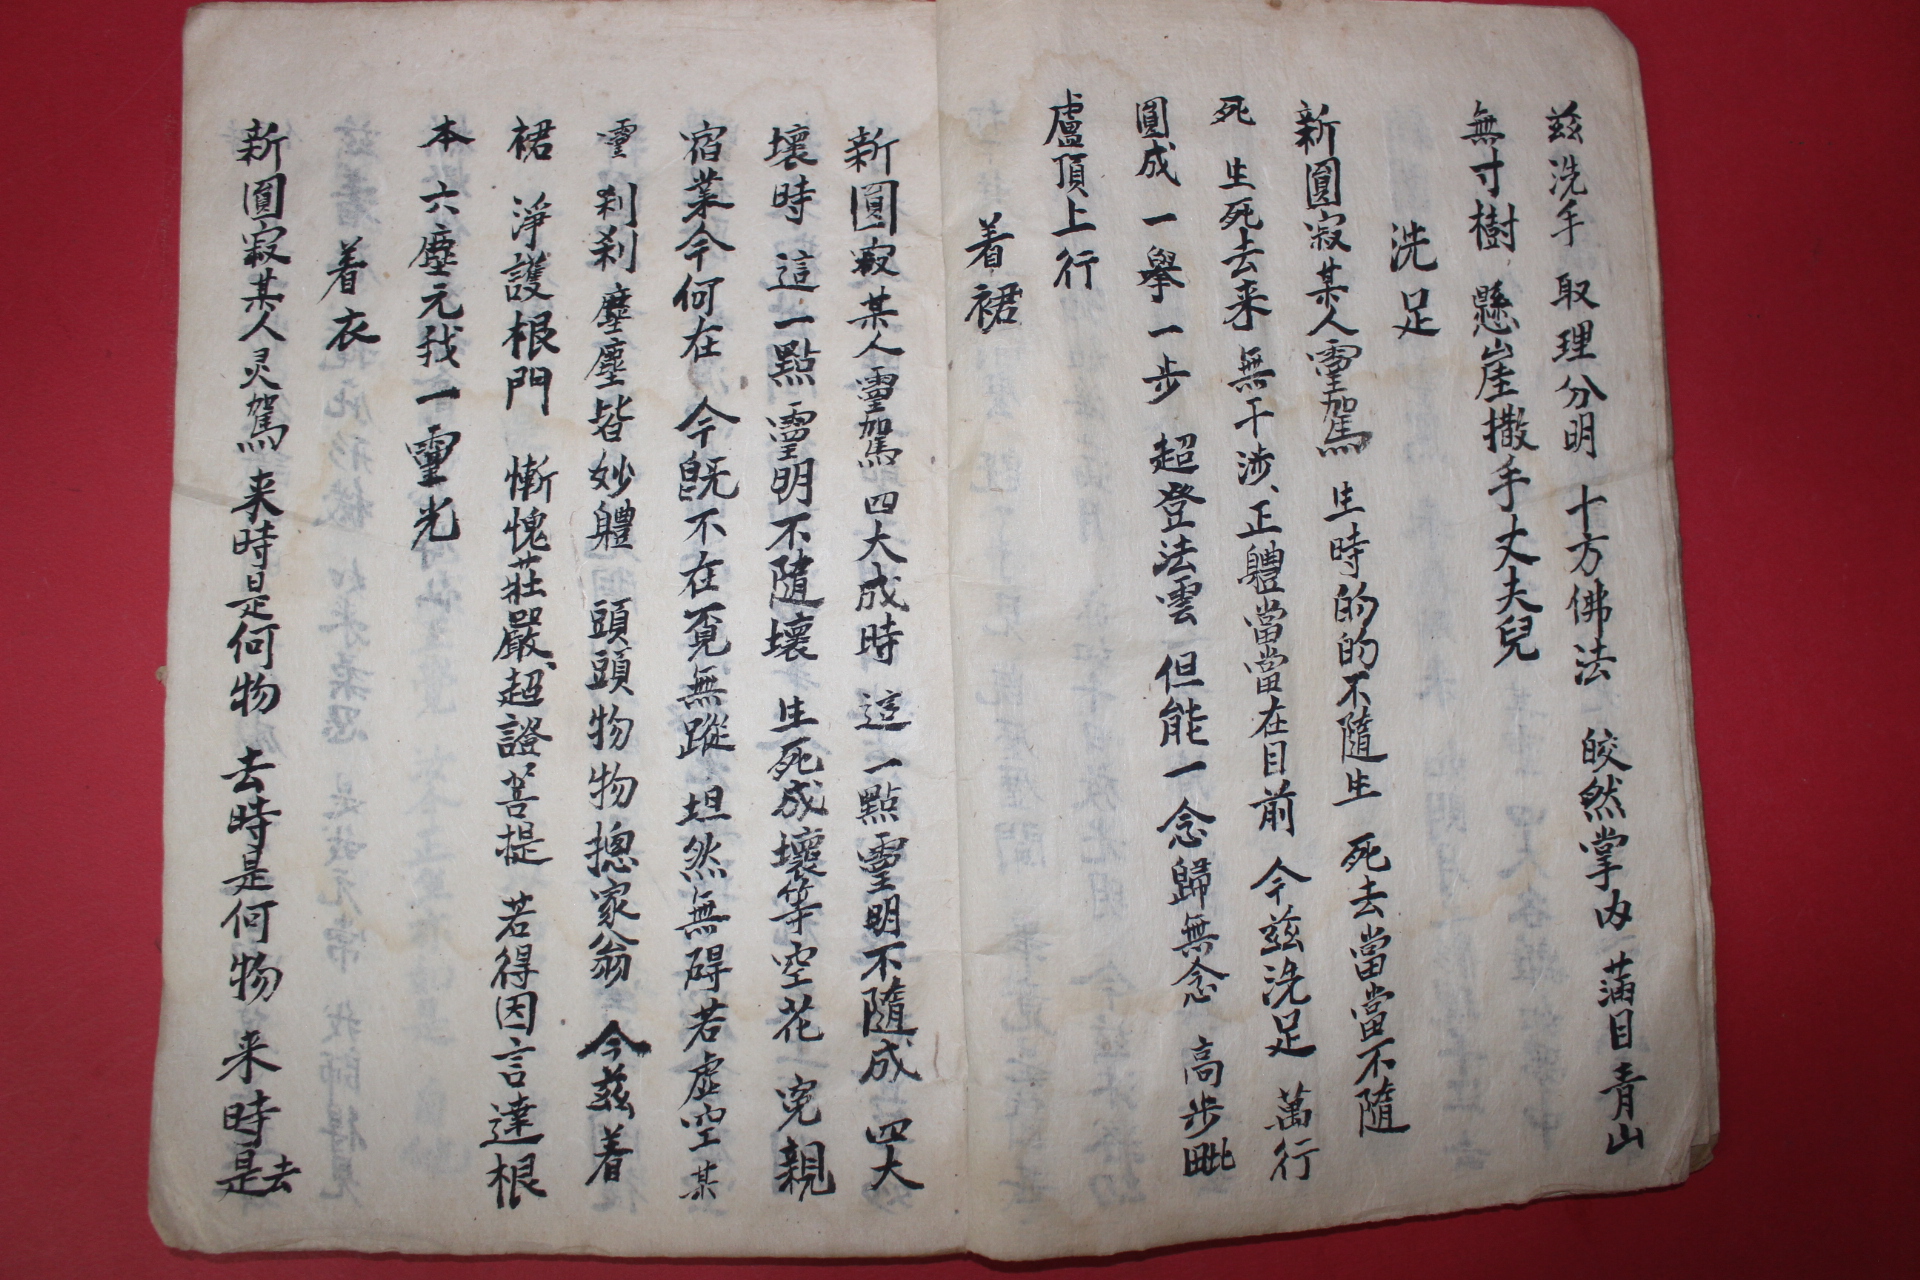 兹洗手 取理分明 十方佛法 皎然掌内 蒲目青山
無寸樹 懸崖撒手丈夫兒
洗足
新圓寂某人靈駕 生時的的不隨生 死去當當不隨
死 生死去来 無干涉 正軆當當在目前 今兹洗足 萬行
圓成 一擧一步 超登法雲 但能一念歸無念 高步毗
盧頂上行
着裙
新圓寂某人靈駕 四大成時 這一點靈明不隨成 四大
壞時 這一點靈明不隨壞 生死成壞等空花 寃親
宿業今何在 今旣不在覔無蹤 坦然無碍若虛空 某
靈 刹刹塵塵皆妙軆 頭頭物物摠家翁 今兹着
裙 淨護根門 慚愧莊嚴 超證菩提 若得因言達根
本 六塵元我一靈光
着衣
新圓寂某人灵駕 来時是何物 去時是何物 来時是去